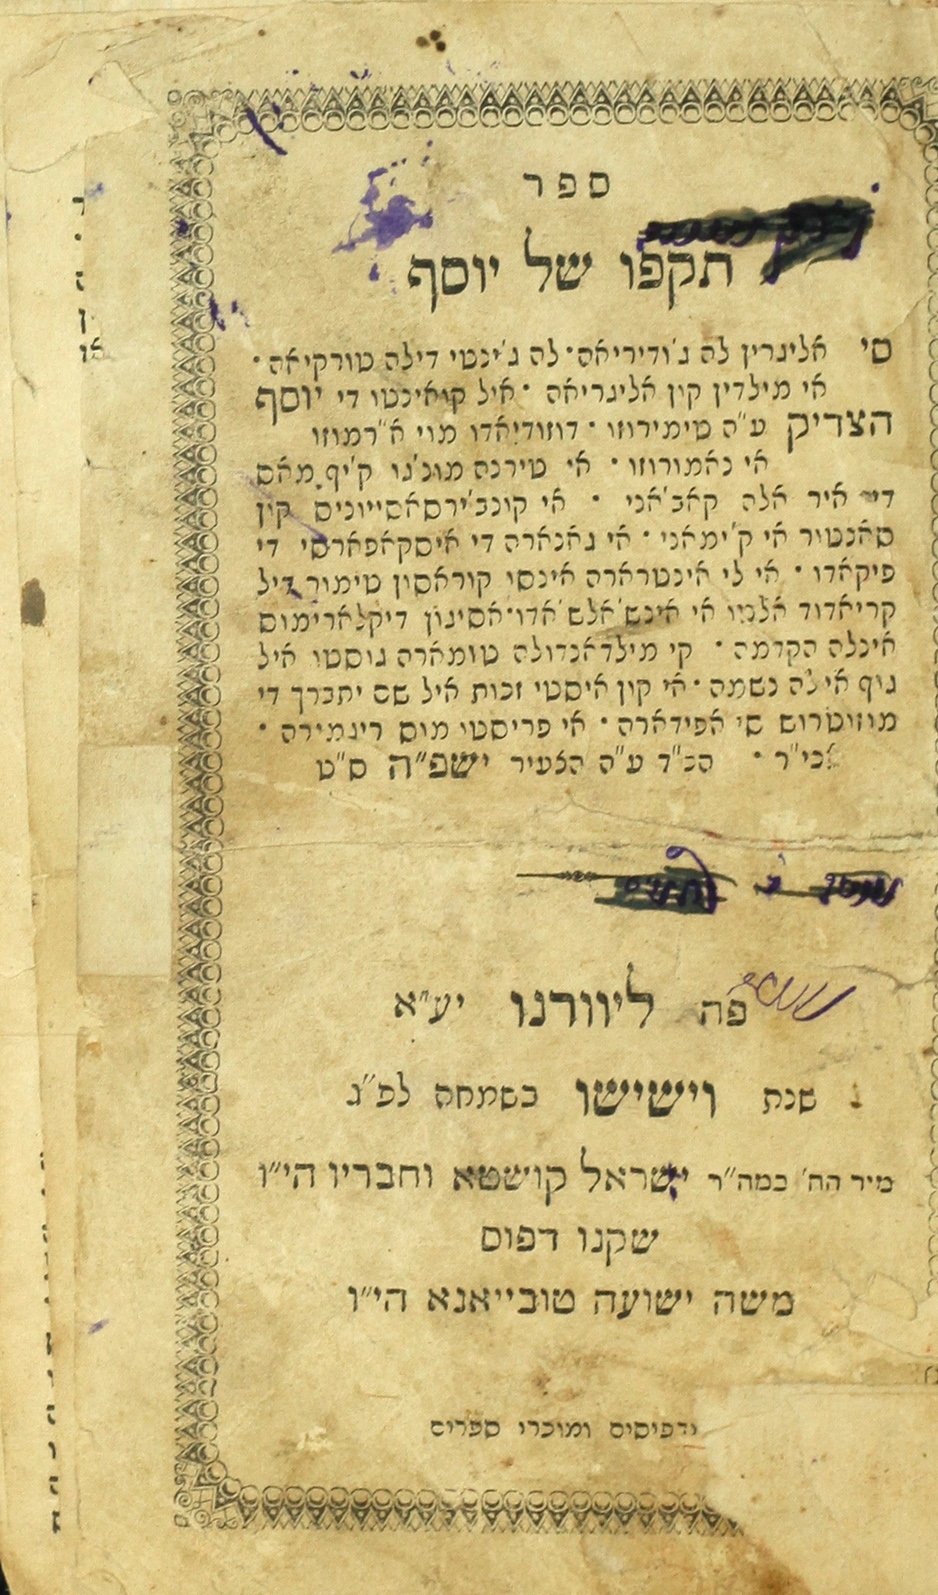 ספר
תקפו של יוסף
סי אליגרין לה ג'ודיריאה · לה ג'ינטי דילה טורקיאה ·
אי מילדין קון אליגריאה · איל קואינטו די יוסף
הצדיק ע"ה טימירוזו · דוזודיאדו מוי א"רמוזו
אי נאמורוזו · אי טירנה מונג'ו ק'יף מאס
די איר אלה קאב'אני · אי קונב'ירסאסייוניס קין
סאנטור אי ק'ימאני · אי גאנארה די איסקאפארסי די
פיקאדו · אי לי אינטרארה אינסי קוראסון טימור דיל
קריאדור אלטו אי אינש'אלש'אדו · אסיגון דיקלארימוס
אינלה הקדמה · קי מילדאנדולה טומארה גוסטו איל
גוף אילה נשמה · אי קון איסטי זכות איל שם יתברך די
מוזוטרוש סי אפידארה · אי פריסטו מוס ריגמירה ·
אכי"ר · הכ"ד ע"ה הצעיר ישפ"ה ס"ט
פה ליוורנו יע"א
שנת וישישו בשמחה לפ"ג
מיד הח' כמה"ר ישראל קושטא וחבריו הי"ו
שקנו דפוס
משה ישועה טובייאנא הי"ו
ידפיסים ומוכרי ספרים